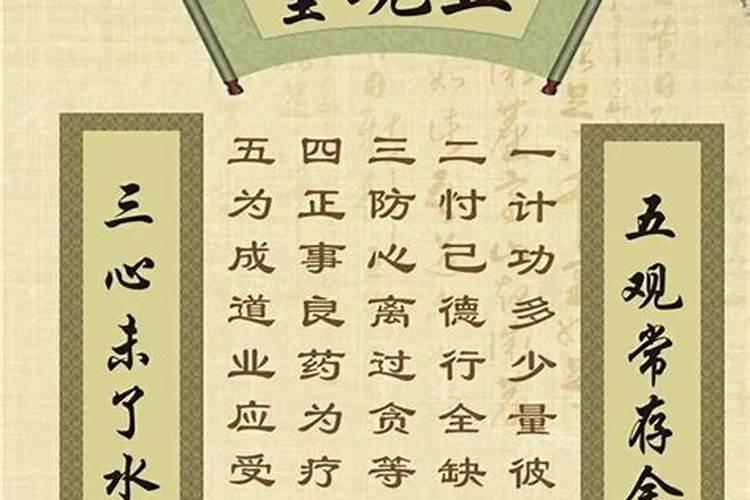 五观常存金
一计功多少量彼
二忖己德行全缺
三防心离过贪等
四正事良药为疗
五为成道业应受
三心未了水